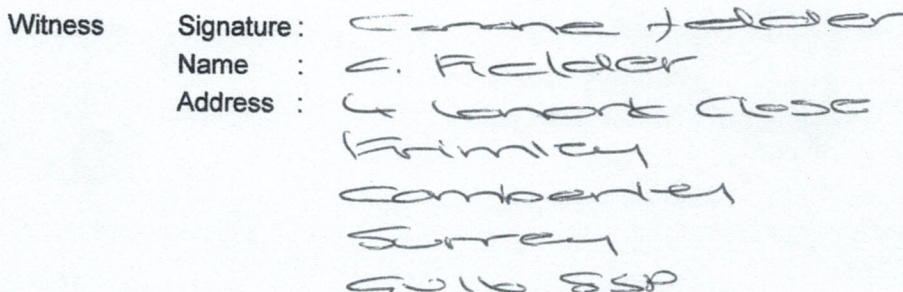 Witness Signature : Corinne Fielder
Name : C. Fielder
Address : 4 Lanark Close
Frimley
Camberley
Surrey
GU16 8SP